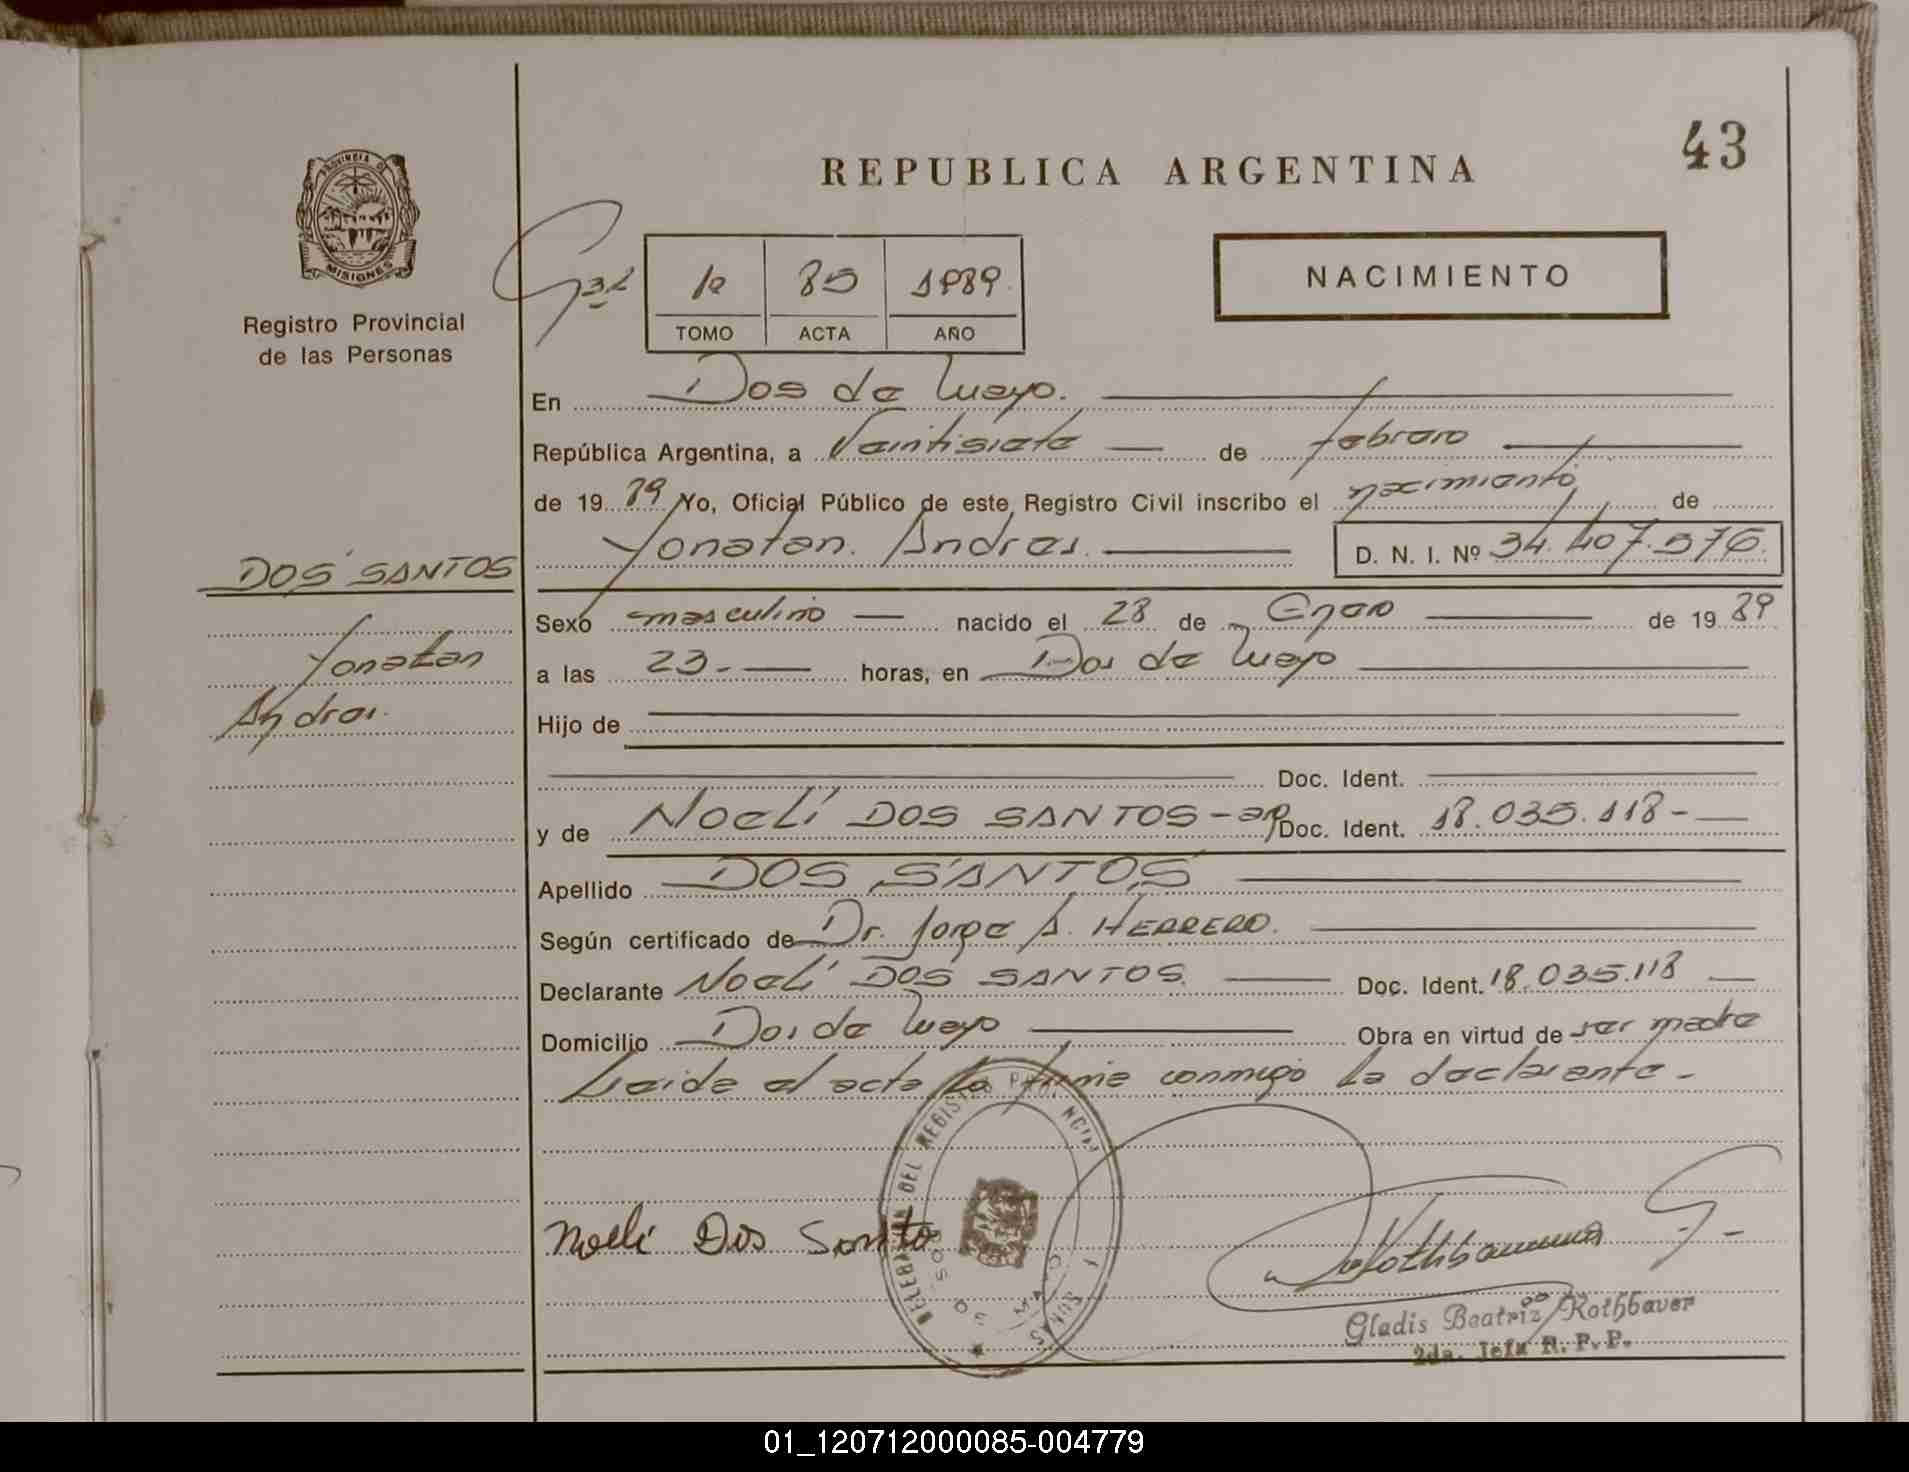 43
REPUBLICA ARGENTINA
PROVINCIA DE
MISIONES
Registro Provincial
de las Personas
1º 85 1989
TOMO ACTA AÑO
NACIMIENTO
En Dos de Mayo.
República Argentina, a Veintisiete de febrero
de 19 89 Yo, Oficial Público de este Registro Civil inscribo el nacimiento de
Yonatan Andres. D. N. I. Nº 34.407.576.
DOS SANTOS
Yonatan
Andres.
Sexo masculino nacido el 28 de Enero de 19 89
a las 23.- horas, en Dos de Mayo
Hijo de
Doc. Ident.
y de Noelí DOS SANTOS - ap Doc. Ident. 18.035.118-
Apellido DOS SANTOS
Según certificado de Dr. Jorge A. HERRERO.
Declarante Noelí DOS SANTOS. Doc. Ident. 18.035.118
Domicilio Dos de Mayo Obra en virtud de ser madre
Leida el acta la firma conmigo la declarante.-
DELEGACION DEL REGISTRO
DOS DE MAYO
Noeli Dos Santo
Gladis Beatriz Rothbaver
2da. Jefa R. P. P.
01_120712000085-004779